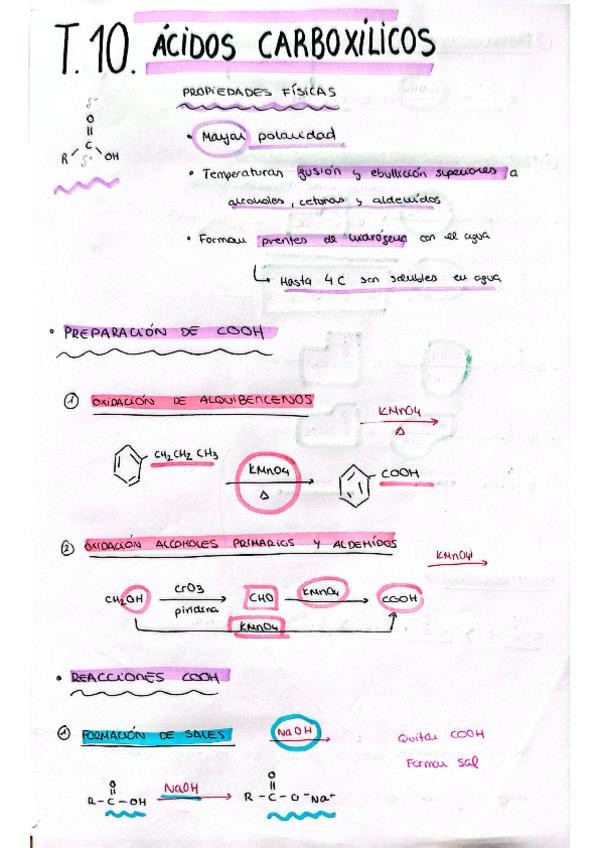 T.10. ÁCIDOS CARBOXÍLICOS
PROPIEDADES FÍSICAS
δ-
O
R C δ+ OH
• Mayor polaridad
• Temperaturas fusión y ebullición superiores a
alcoholes, cetonas y aldehídos
• Forman puentes de hidrógeno con el agua
↳ Hasta 4 C son solubles en agua
• PREPARACIÓN DE COOH
① OXIDACIÓN DE ALQUIBENCENOS
KMnO4
Δ
CH2 CH2 CH3
KMnO4
Δ
COOH
② OXIDACIÓN ALCOHOLES PRIMARIOS Y ALDEHÍDOS
KMnO4
CH2OH CrO3 CHO KMnO4 COOH
piridina
KMnO4
• REACCIONES COOH
① FORMACIÓN DE SALES
NaOH
Quitar COOH
Formar sal
O
R - C - OH
NaOH
O
R - C - O⁻Na⁺